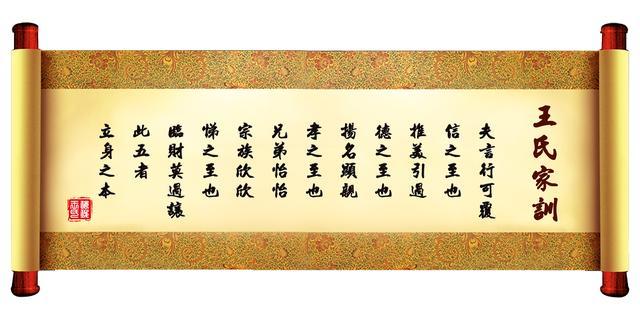 王氏家訓
夫言行可覆
信之至也
推美引過
德之至也
揚名顯親
孝之至也
兄弟怡怡
宗族欣欣
悌之至也
臨財莫過讓
此五者
立身之本